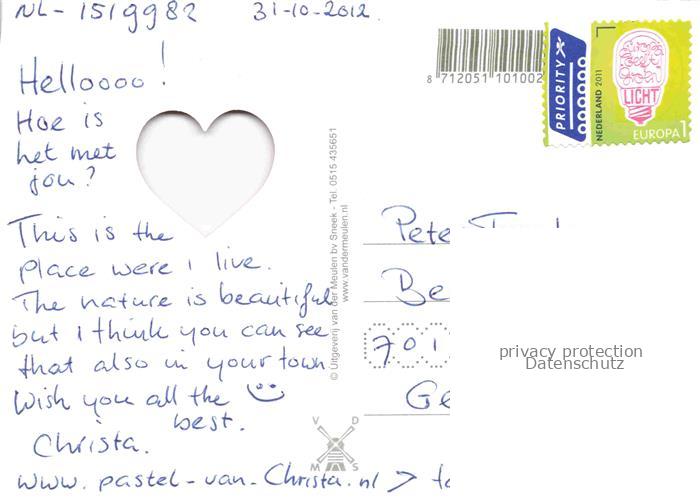 NL-1519982 31-10-2012.
Helloooo!
Hoe is
het met
jou?
This is the
place were i live.
The nature is beautiful
but i think you can see
that also in your town
Wish you all the
best.
Christa.
www.pastel-van-Christa.nl > 
8 712051 101002
PRIORITY
NEDERLAND 2011
LICHT
EUROPA 1
© Uitgeverij van der Meulen bv Sneek - Tel. 0515 435651
www.vandermeulen.nl
Pete
Be
701
Ge
privacy protection
Datenschutz
V D
M S